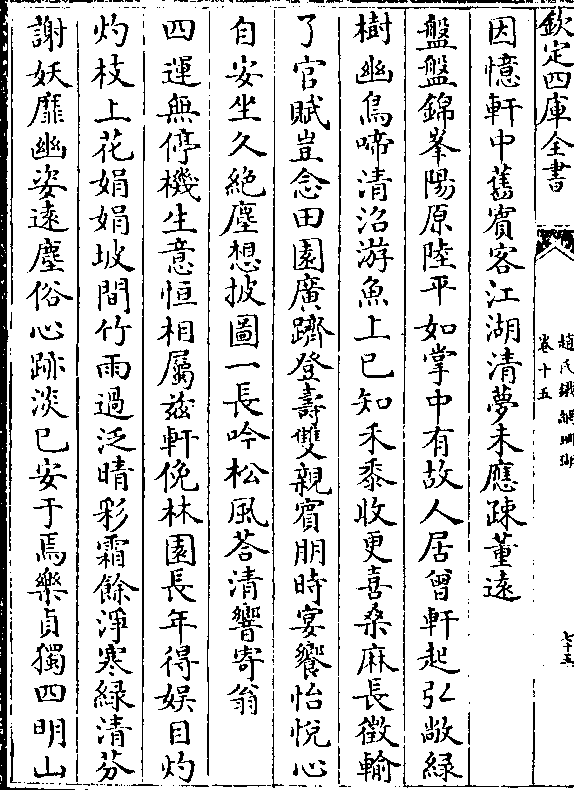 欽定四庫全書
趙氏鐵網珊瑚
卷十五
七十五
因憶軒中舊賓客江湖清夢未應疎董遠
盤盤錦峯陽原陸平如掌中有故人居曾軒起弘敞綠
樹幽鳥啼清沼游魚上已知禾黍收更喜桑麻長徵輸
了官賦豈念田園廣躋登壽雙親賓朋時宴饗怡悅心
自安坐久絶塵想披圖一長吟松風荅清響寄翁
四運無停機生意恒相屬茲軒俛林園長年得娱目灼
灼枝上花娟娟坡間竹雨過泛晴彩霜餘淨寒緑清芬
謝妖靡幽姿遠塵俗心跡淡已安于焉樂貞獨四明山